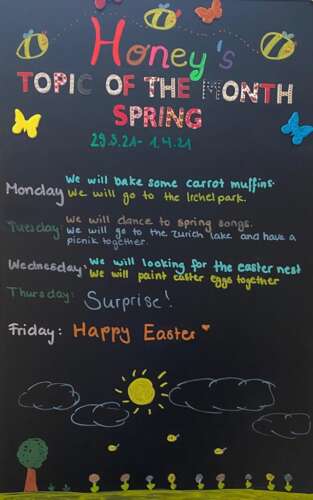 Honey's
TOPIC OF THE MONTH
SPRING
29.3.21- 1.4.21
Monday: We will bake some carrot muffins.
We will go to the Irchel park.
Tuesday: We will dance to spring songs.
We will go to the Zurich lake and have a
picnik together.
Wednesday: We will looking for the easter nest
We will paint easter eggs together
Thursday: Surprise!
Friday: Happy Easter